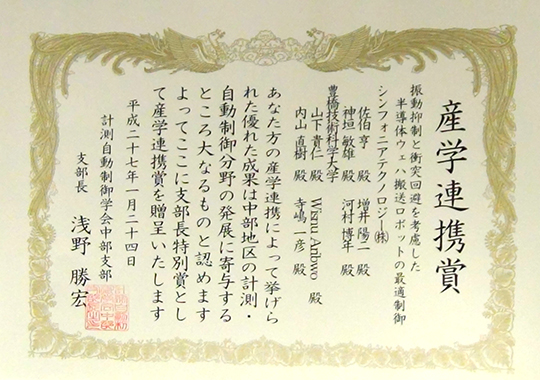 産学連携賞
振動抑制と衝突回避を考慮した
半導体ウェハ搬送ロボットの最適制御
シンフォニアテクノロジー㈱
佐伯 亨 殿 増井 陽二 殿
神垣 敏雄 殿 河村 博年 殿
豊橋技術科学大学
山下 貴仁 殿 Wisnu Aribowo 殿
内山 直樹 殿 寺嶋 一彦 殿
あなた方の産学連携によって挙げら
れた優れた成果は中部地区の計測・
自動制御分野の発展に寄与する
ところ大なるものと認めます
よってここに支部長特別賞とし
て産学連携賞を贈呈いたします
平成二十七年一月二十四日
計測自動制御学会中部支部
支部長 浅野 勝宏